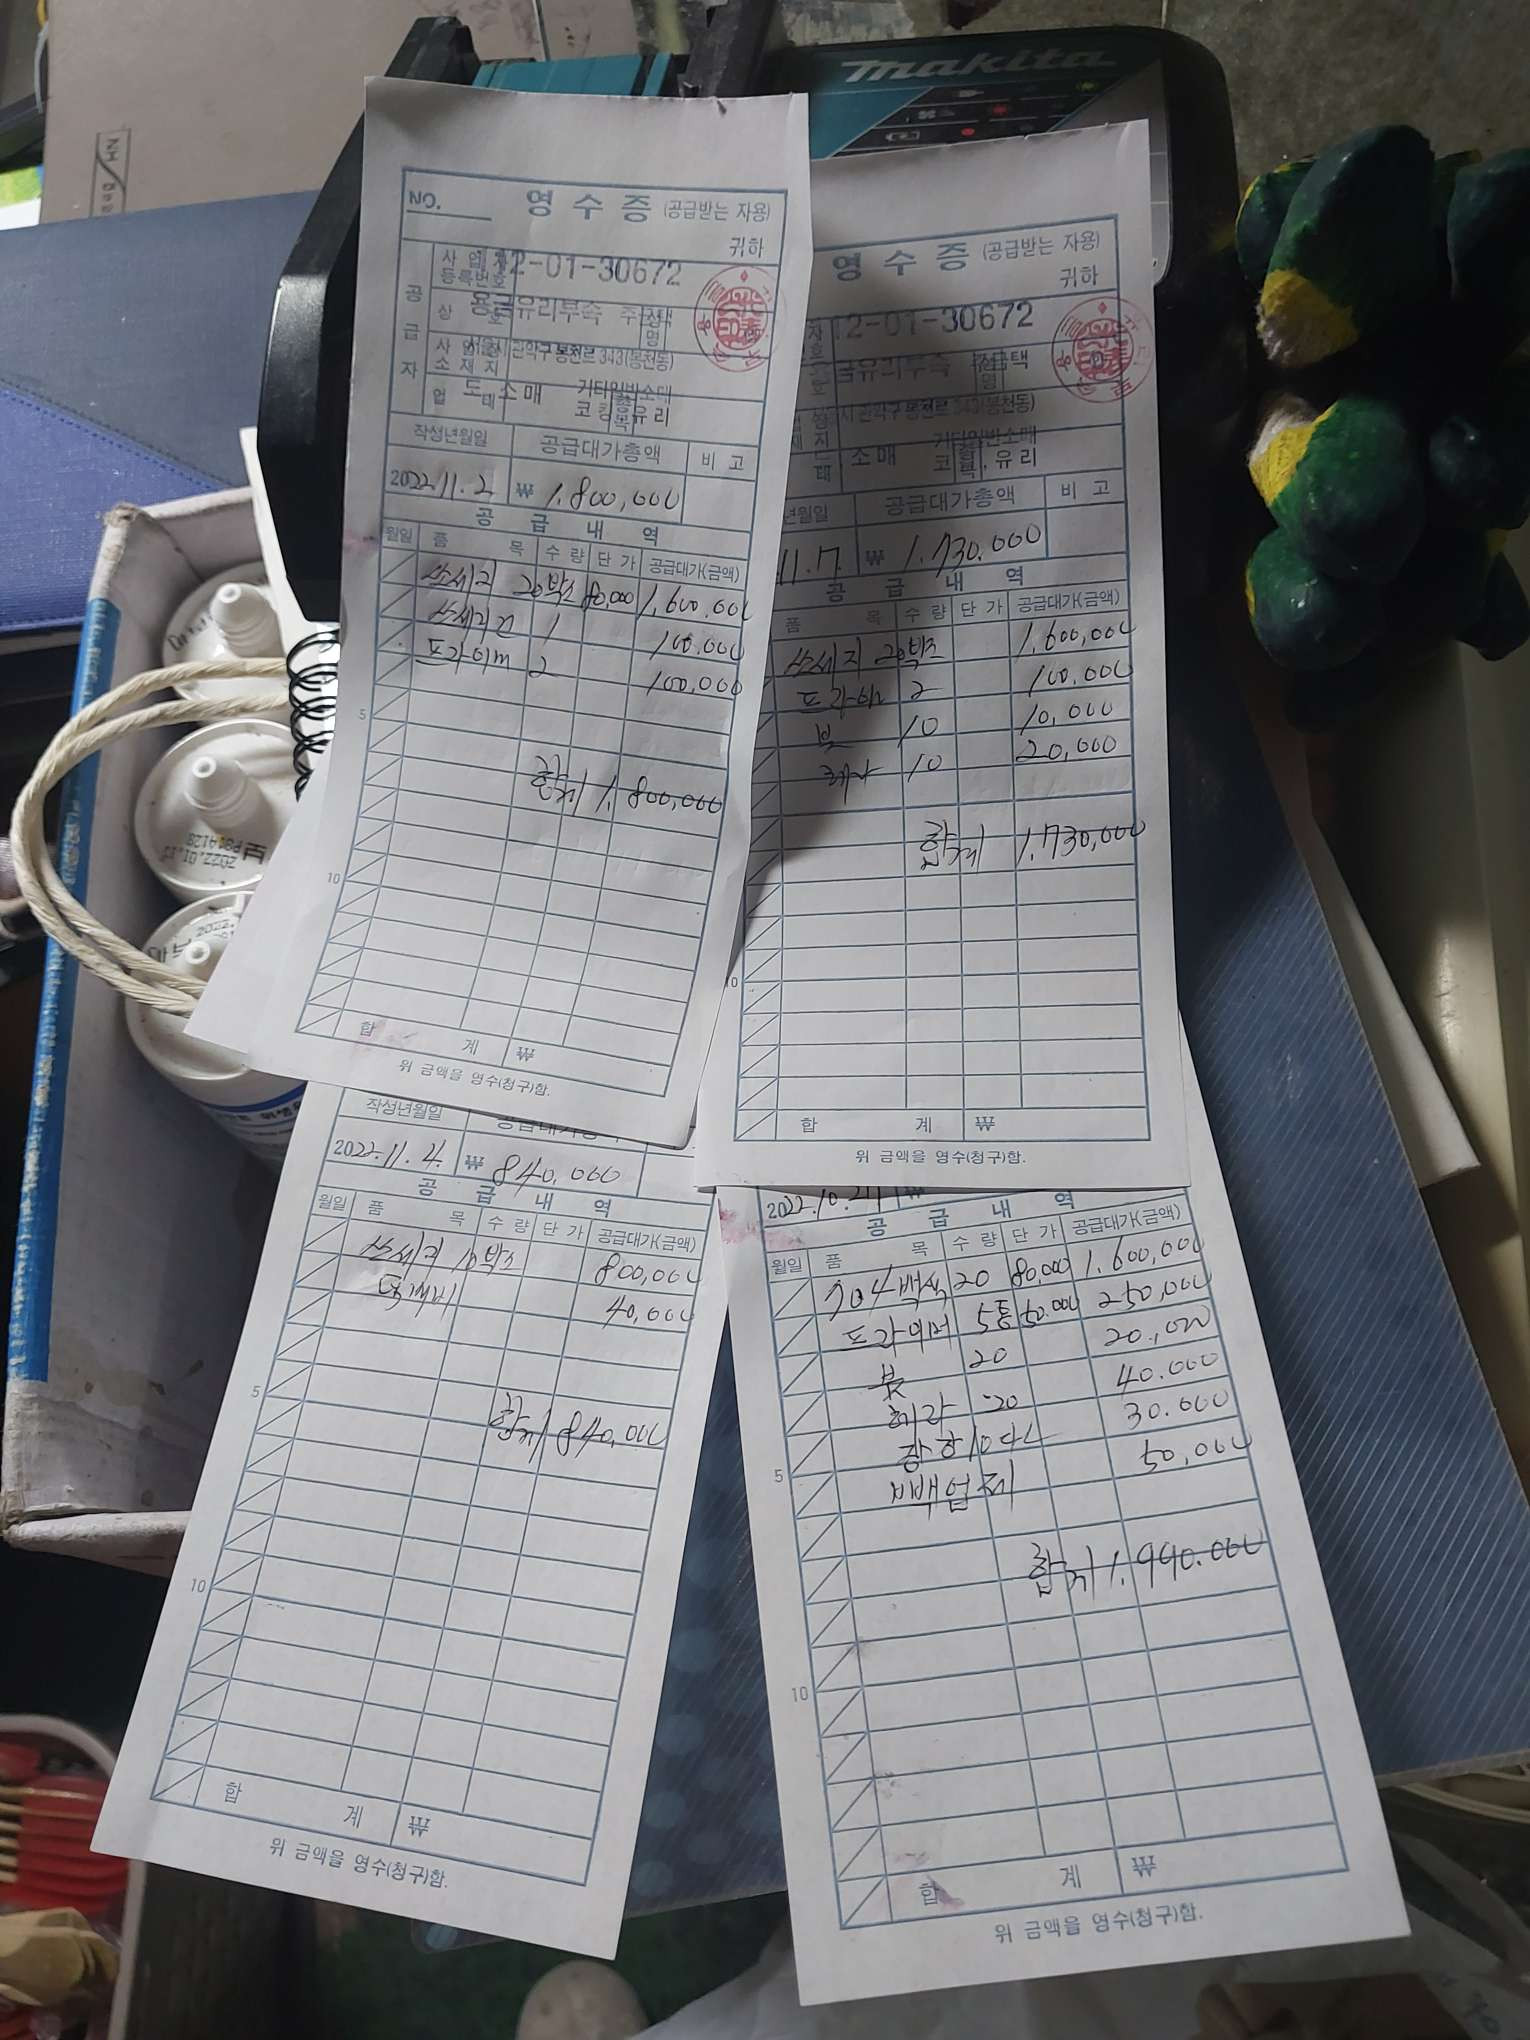 makita
NO.
영 수 증 (공급받는 자용)
귀하
사 업 자
등록번호
2-01-30672
공
급
자
상 호
용금유리부속
성
명
사 업 장
소 재 지
관악구 봉천로 343(봉천동)
업 태
도 소매
기타일반소매
코킹용유리
작성년월일 공급대가총액 비 고
2022.11.2 ₩ 1.800,000
공 급 내 역
월일 품 목 수 량 단 가 공급대가(금액)
20박스 80,000 1,600.000
1 100.000
2 100,000
5
합계 1.800,000
10
합 계 ₩
위 금액을 영수(청구)함.
영 수 증 (공급받는 자용)
귀하
2-01-30672
금유리부속
관악구 봉천로 343(봉천동)
소매
기타일반소매
유리
년월일 공급대가총액 비 고
11.7. ₩ 1.730.000
공 급 내 역
품 목 수 량 단 가 공급대가(금액)
20박스 1.600,000
2 100.000
붓 10 10,000
10 20,000
합계 1.730,000
10
합 계 ₩
위 금액을 영수(청구)함.
작성년월일
2022.11.4. ₩ 840,000
공 급 내 역
월일 품 목 수 량 단 가 공급대가(금액)
10박스 800,000
40,000
5
합계 840,000
10
합 계 ₩
위 금액을 영수(청구)함.
2022.10.21 ₩
공 급 내 역
월일 품 목 수 량 단 가 공급대가(금액)
704백색 20 80,000 1.600,000
프라이머 5통 50.000 250,000
붓 20 20.,000
헤라 20 40.000
30.000
5
빽업제 50,000
합계 1.990.000
10
합 계 ₩
위 금액을 영수(청구)함.